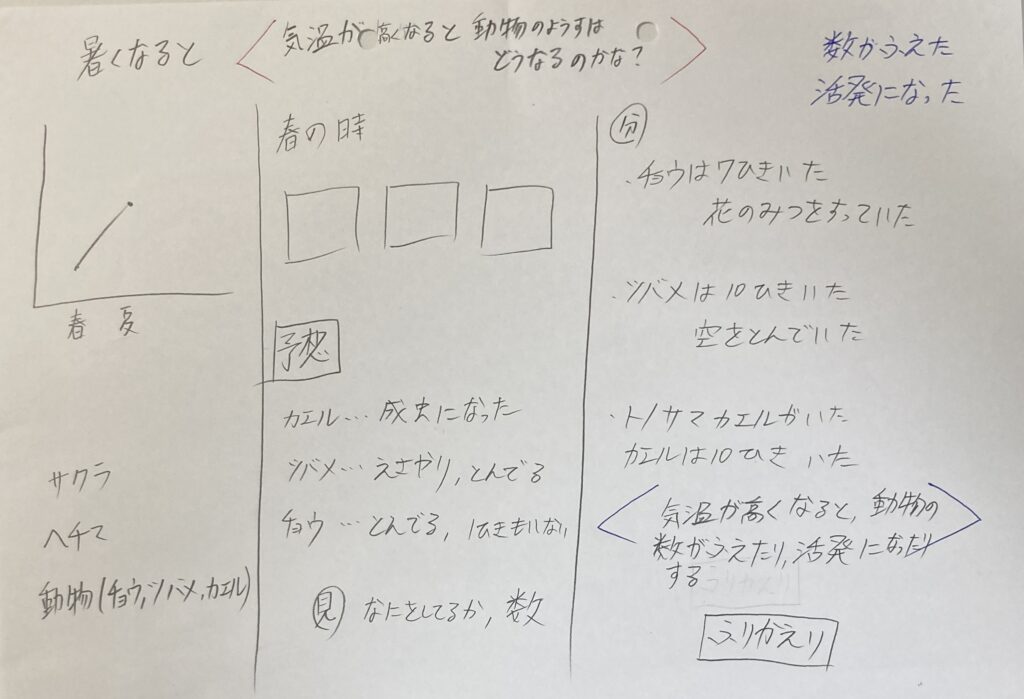 暑くなると
気温が高くなると動物のようすは
どうなるのかな?
数がふえた
活発になった
春 夏
サクラ
ヘチマ
動物(チョウ,ツバメ,カエル)
春の時
予想
カエル…成虫になった
ツバメ…えさやり,とんでる
チョウ…とんでる,1ひきもいない
見 なにをしてるか,数
分
・チョウは7ひきいた
花のみつをすっていた
・ツバメは10ひきいた
空をとんでいた
・トノサマカエルがいた
カエルは10ひき いた
気温が高くなると,動物の
数がふえたり,活発になったり
する
ふりかえり
ふりかえり